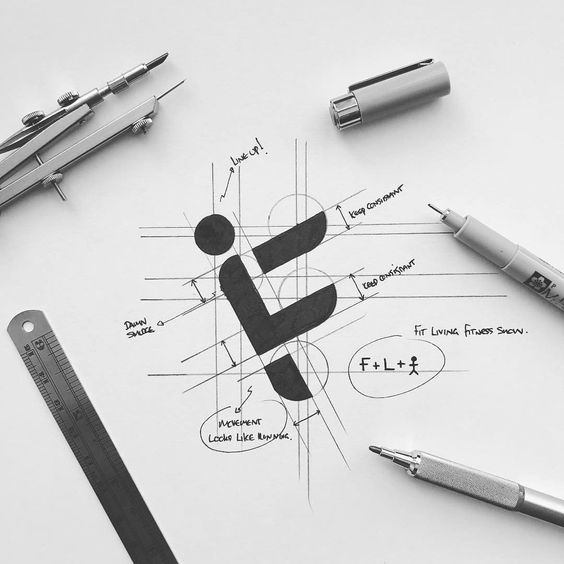 LINE UP!
KEEP CONSISTANT
KEEP CONSISTANT
DAMN
SMUDGE
FIT LIVING FITNESS SHOW.
F+L+
MOVEMENT
LOOKS LIKE RUNNING.